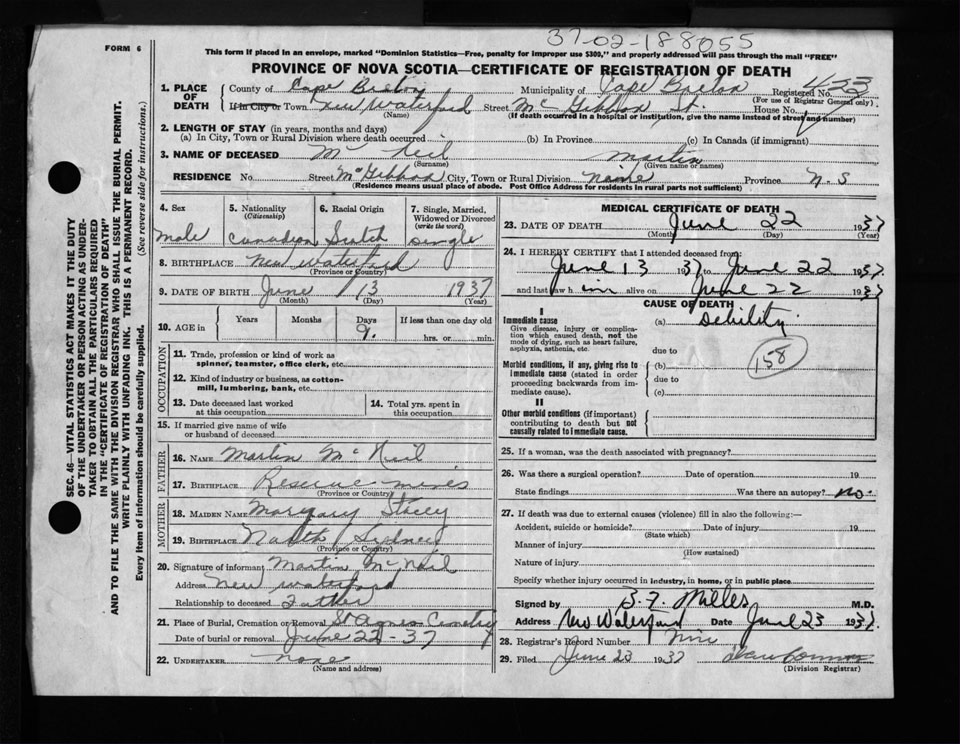 37-02-188055
FORM 6
This form if placed in an envelope, marked "Dominion Statistics—Free, penalty for improper use $300," and properly addressed will pass through the mail "FREE"
PROVINCE OF NOVA SCOTIA—CERTIFICATE OF REGISTRATION OF DEATH
SEC. 46—VITAL STATISTICS ACT MAKES IT THE DUTY
OF THE UNDERTAKER OR PERSON ACTING AS UNDER-
TAKER TO OBTAIN ALL THE PARTICULARS REQUIRED
IN THE "CERTIFICATE OF REGISTRATION OF DEATH"
AND TO FILE THE SAME WITH THE DIVISION REGISTRAR WHO SHALL ISSUE THE BURIAL PERMIT.
WRITE PLAINLY WITH UNFADING INK. THIS IS A PERMANENT RECORD.
Every item of information should be carefully supplied.
(See reverse side for instructions.)
1. PLACE OF DEATH County of Cape Breton Municipality of Cape Breton Registered No.
(For use of Registrar General only)
If in City or Town New Waterford Street McGibbon St. House No.
(Name) (If death occurred in a hospital or institution, give the name instead of street and number)
2. LENGTH OF STAY (in years, months and days)
(a) In City, Town or Rural Division where death occurred (b) In Province (c) In Canada (if immigrant)
3. NAME OF DECEASED McNeil Martin
(Surname) (Given name or names)
RESIDENCE No. Street McGibbon City, Town or Rural Division Province N.S
(Residence means usual place of abode. Post Office Address for residents in rural parts not sufficient)
4. Sex 5. Nationality (Citizenship) 6. Racial Origin 7. Single, Married, Widowed or Divorced (write the word)
Male Canadian Scotch Single
8. BIRTHPLACE New Waterford
(Province or Country)
9. DATE OF BIRTH June 13 1937
(Month) (Day) (Year)
10. AGE in Years Months Days If less than one day old
9. hrs. or min.
OCCUPATION
11. Trade, profession or kind of work as spinner, teamster, office clerk, etc.
12. Kind of industry or business, as cotton-mill, lumbering, bank, etc.
13. Date deceased last worked at this occupation
14. Total yrs. spent in this occupation
15. If married give name of wife or husband of deceased
FATHER
16. NAME Martin McNeil
17. BIRTHPLACE Reserve mines
(Province or Country)
MOTHER
18. MAIDEN NAME Stacey
19. BIRTHPLACE North Sydney
(Province or Country)
20. Signature of informant Martin McNeil
Address New Waterford
Relationship to deceased Father
21. Place of Burial, Cremation or Removal St Agnes Cemetry
Date of burial or removal June 22-37
22. UNDERTAKER none
(Name and address)
MEDICAL CERTIFICATE OF DEATH
23. DATE OF DEATH June 22 1937
(Month) (Day) (Year)
24. I HEREBY CERTIFY that I attended deceased from:
June 13 1937 to June 22 1937
and last saw him alive on June 22 1937
CAUSE OF DEATH
I
Immediate cause
Give disease, injury or complication which caused death, not the mode of dying, such as heart failure, asphyxia, asthenia, etc.
(a) Debility
due to
158
Morbid conditions, if any, giving rise to immediate cause (stated in order proceeding backwards from immediate cause).
(b)
due to
(c)
II
Other morbid conditions (if important) contributing to death but not causally related to immediate cause.
25. If a woman, was the death associated with pregnancy?
26. Was there a surgical operation? Date of operation 19
State findings Was there an autopsy? no.
27. If death was due to external causes (violence) fill in also the following:—
Accident, suicide or homicide? Date of injury 19
(State which)
Manner of injury
(How sustained)
Nature of injury
Specify whether injury occurred in industry, in home, or in public place
Signed by M.D.
Address New Waterford June 23 1937.
28. Registrar's Record Number
29. Filed June 23 1937
(Division Registrar)